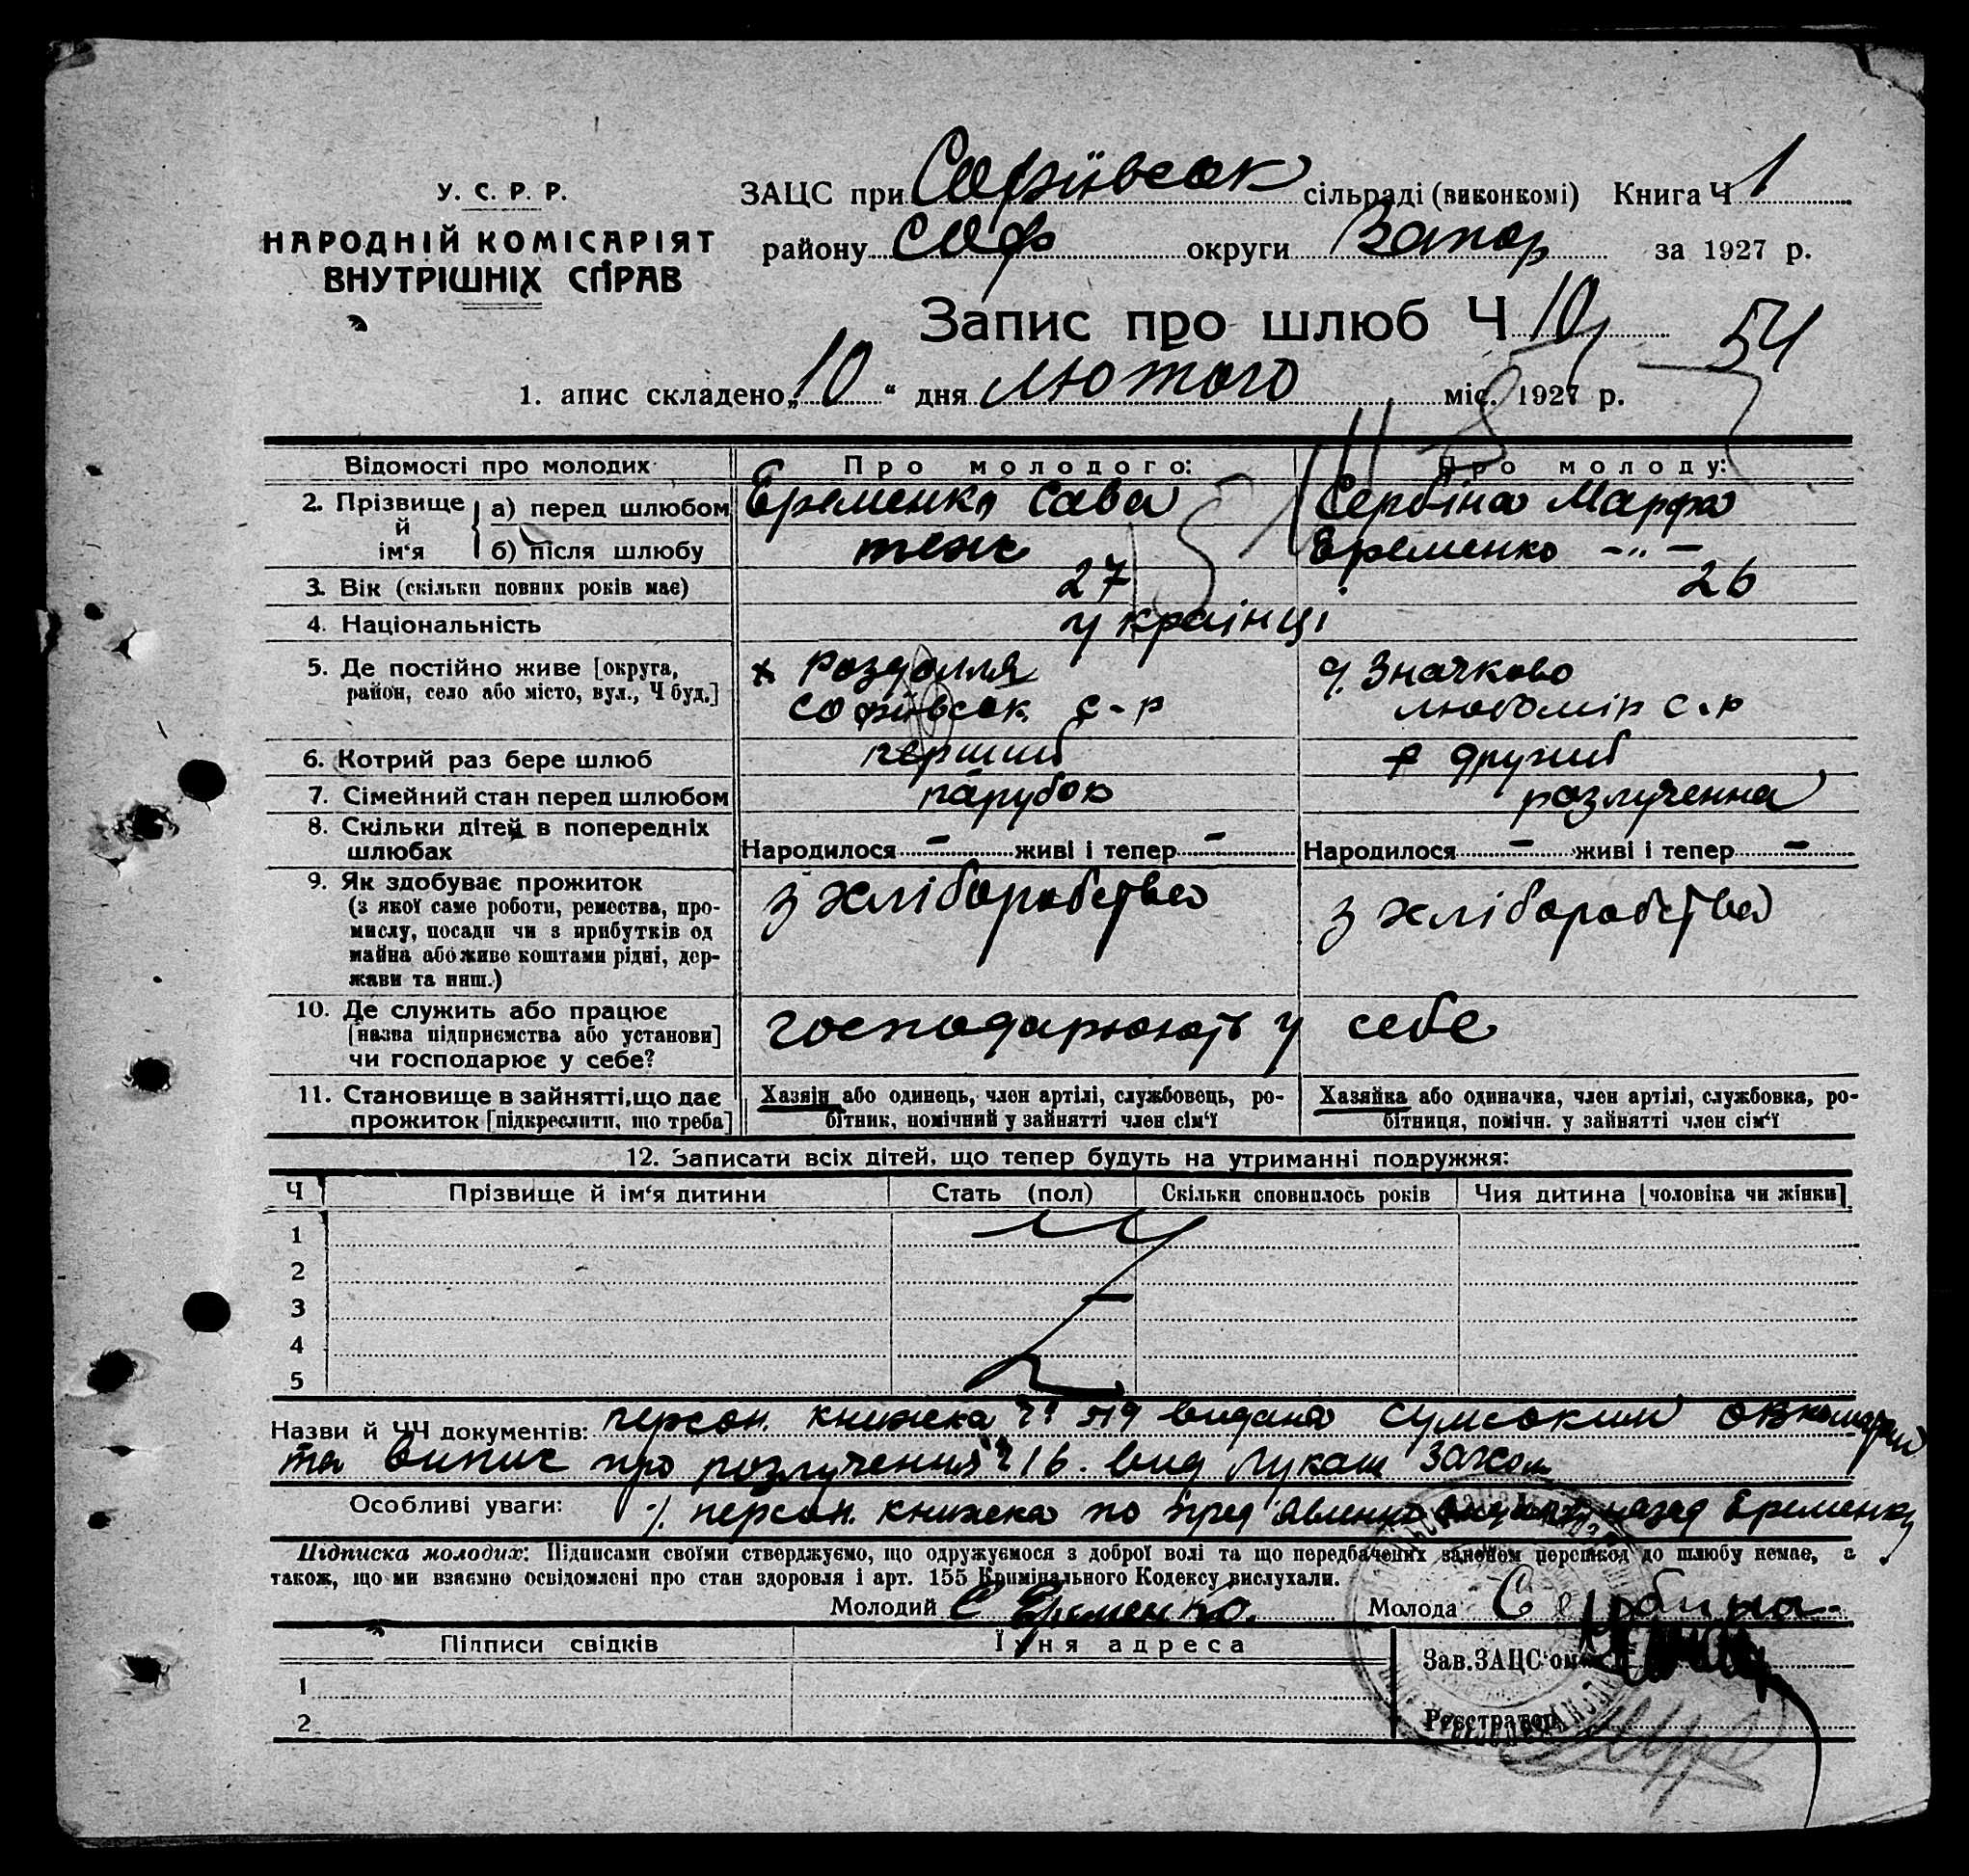 У. С. Р. Р.
НАРОДНІЙ КОМІСАРІЯТ
ВНУТРІШНІХ СПРАВ
ЗАЦС при Софиївськ сільраді (виконкомі) Книга Ч 1
району Соф округи Запор за 1927 р.
Запис про шлюб Ч 10
54
1. апис складено „10“ дня лютого міс. 1927 р.
Відомості про молодих
Про молодого:
Про молоду:
2. Прізвище й ім‘я
а) перед шлюбом Еременко Сава Сербіна Марфа
б) після шлюбу теж Еременко -"-
3. Вік (скільки повних років має) 27 26
4. Національність українці
5. Де постійно живе [округа, район, село або місто, вул., Ч буд.]
х Роздолля
Софиївськ с-р
Значково
любомір с-р
6. Котрий раз бере шлюб перший другий
7. Сімейний стан перед шлюбом парубок розлученна
8. Скільки дітей в попередніх шлюбах
Народилося - живі і тепер - Народилося - живі і тепер -
9. Як здобуває прожиток
(з якої саме роботи, ремества, про-
мислу, посади чи з прибутків од
майна або живе коштами рідні, дер-
жави та инш.)
з хліборобства
з хліборобства
10. Де служить або працює
[назва підприємства або установи]
чи господарює у себе?
господарюють у себе
11. Становище в зайнятті, що дає
прожиток [підкреслити, що треба]
Хазяїн або одинець, член артілі, службовець, ро-
бітник, помічний у зайнятті член сім‘ї
Хазяйка або одиначка, член артілі, службовка, ро-
бітниця, помічн. у зайнятті член сім‘ї
12. Записати всіх дітей, що тепер будуть на утриманні подружжя:
Ч Прізвище й ім‘я дитини Стать (пол) Скільки сповнилось років Чия дитина [чоловіка чи жінки]
1
2
3
4
5
Назви й ЧЧ документів: персон. книжка видана сумським
та випис про розлучення 16. вид Лукаш загсом
Особливі уваги: персон. книжка по назад Еременку
Підписка молодих: Підписами своїми стверджуємо, що одружуємося з доброї волі та що передбачених законом перешкод до шлюбу немає, а
також, що ми взаємно освідомлені про стан здоровля і арт. 155 Кримінального Кодексу вислухали.
Молодий С Еременко. Молода Сербина.
Підписи свідків Їхня адреса
1
2
Зав. ЗАЦС‘ом
Реєстратор